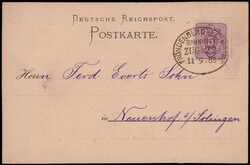 DEUTSCHE REICHSPOST.
POSTKARTE.
ZUG 22
11 9 83
Herrn Ferd Everts Sohn
in
Neuenhof b/Solingen